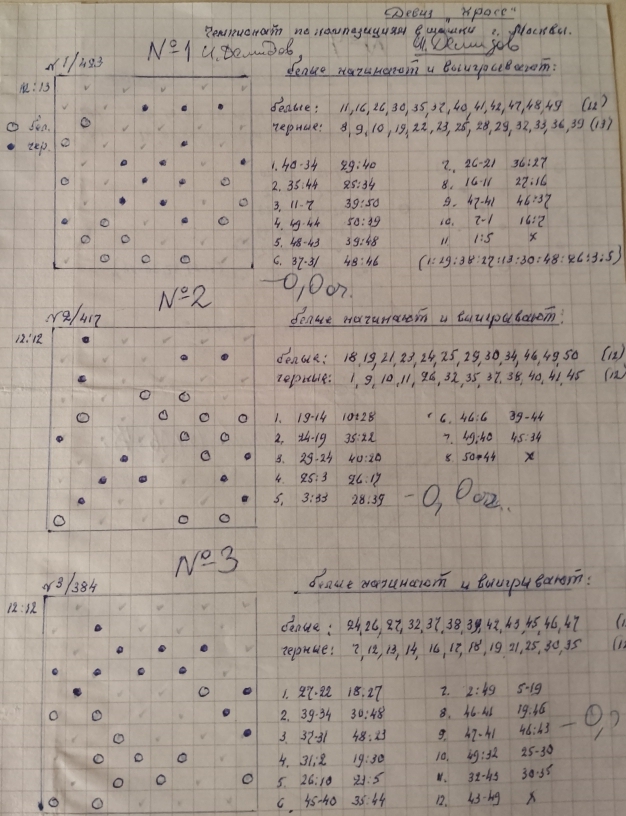 Девиз "Кросс"
Чемпионат по композиции в шашки г. Москвы.
И. Демидов И. Демидов
№1
№1/493
белые начинают и выигрывают:
12:13
бел.
чер.
белые: 11,16,26,30,35,37,40,41,42,47,48,49 (12)
черные: 8,9,10,19,22,23,25,28,29,32,33,36,39 (13)
1. 40-34 29:40 7. 26-21 36:27
2. 35:44 25:34 8. 16-11 27:16
3. 11-7 39:50 9. 47-41 46:37
4. 49-44 50:39 10. 7-1 16:7
5. 48-43 39:48 11. 1:5 x
6. 37-31 48:46 (1:29:38:27:13:30:48:26:3:5)
-0,0 оч.
№2
№2/417
белые начинают и выигрывают:
12:12
белые: 18,19,21,23,24,25,29,30,34,46,49,50 (12)
черные: 1,9,10,11,26,32,35,37,38,40,41,45 (12
1. 19-14 10:28 6. 46:6 39-44
2. 24-19 35:22 7. 49:40 45:34
3. 29-24 40:20 8. 50-44 x
4. 25:3 26:17
5. 3:33 28:39 -0,0 оч.
№3
№3/384
белые начинают и выигрывают:
12:12
белые: 24,26,27,32,37,38,39,42,43,45,46,47
черные: 7,12,13,14,16,17,18,19,21,25,30,35
1. 27-22 18:27 7. 2:49 5-19
2. 39-34 30:48 8. 46-41 19:46
3. 37-31 48:23 9. 47-41 46:43 -0,
4. 31:2 19:30 10. 49:32 25-30
5. 26:10 23:5 11. 32-43 30-35
6. 45-40 35:44 12. 43-49 x